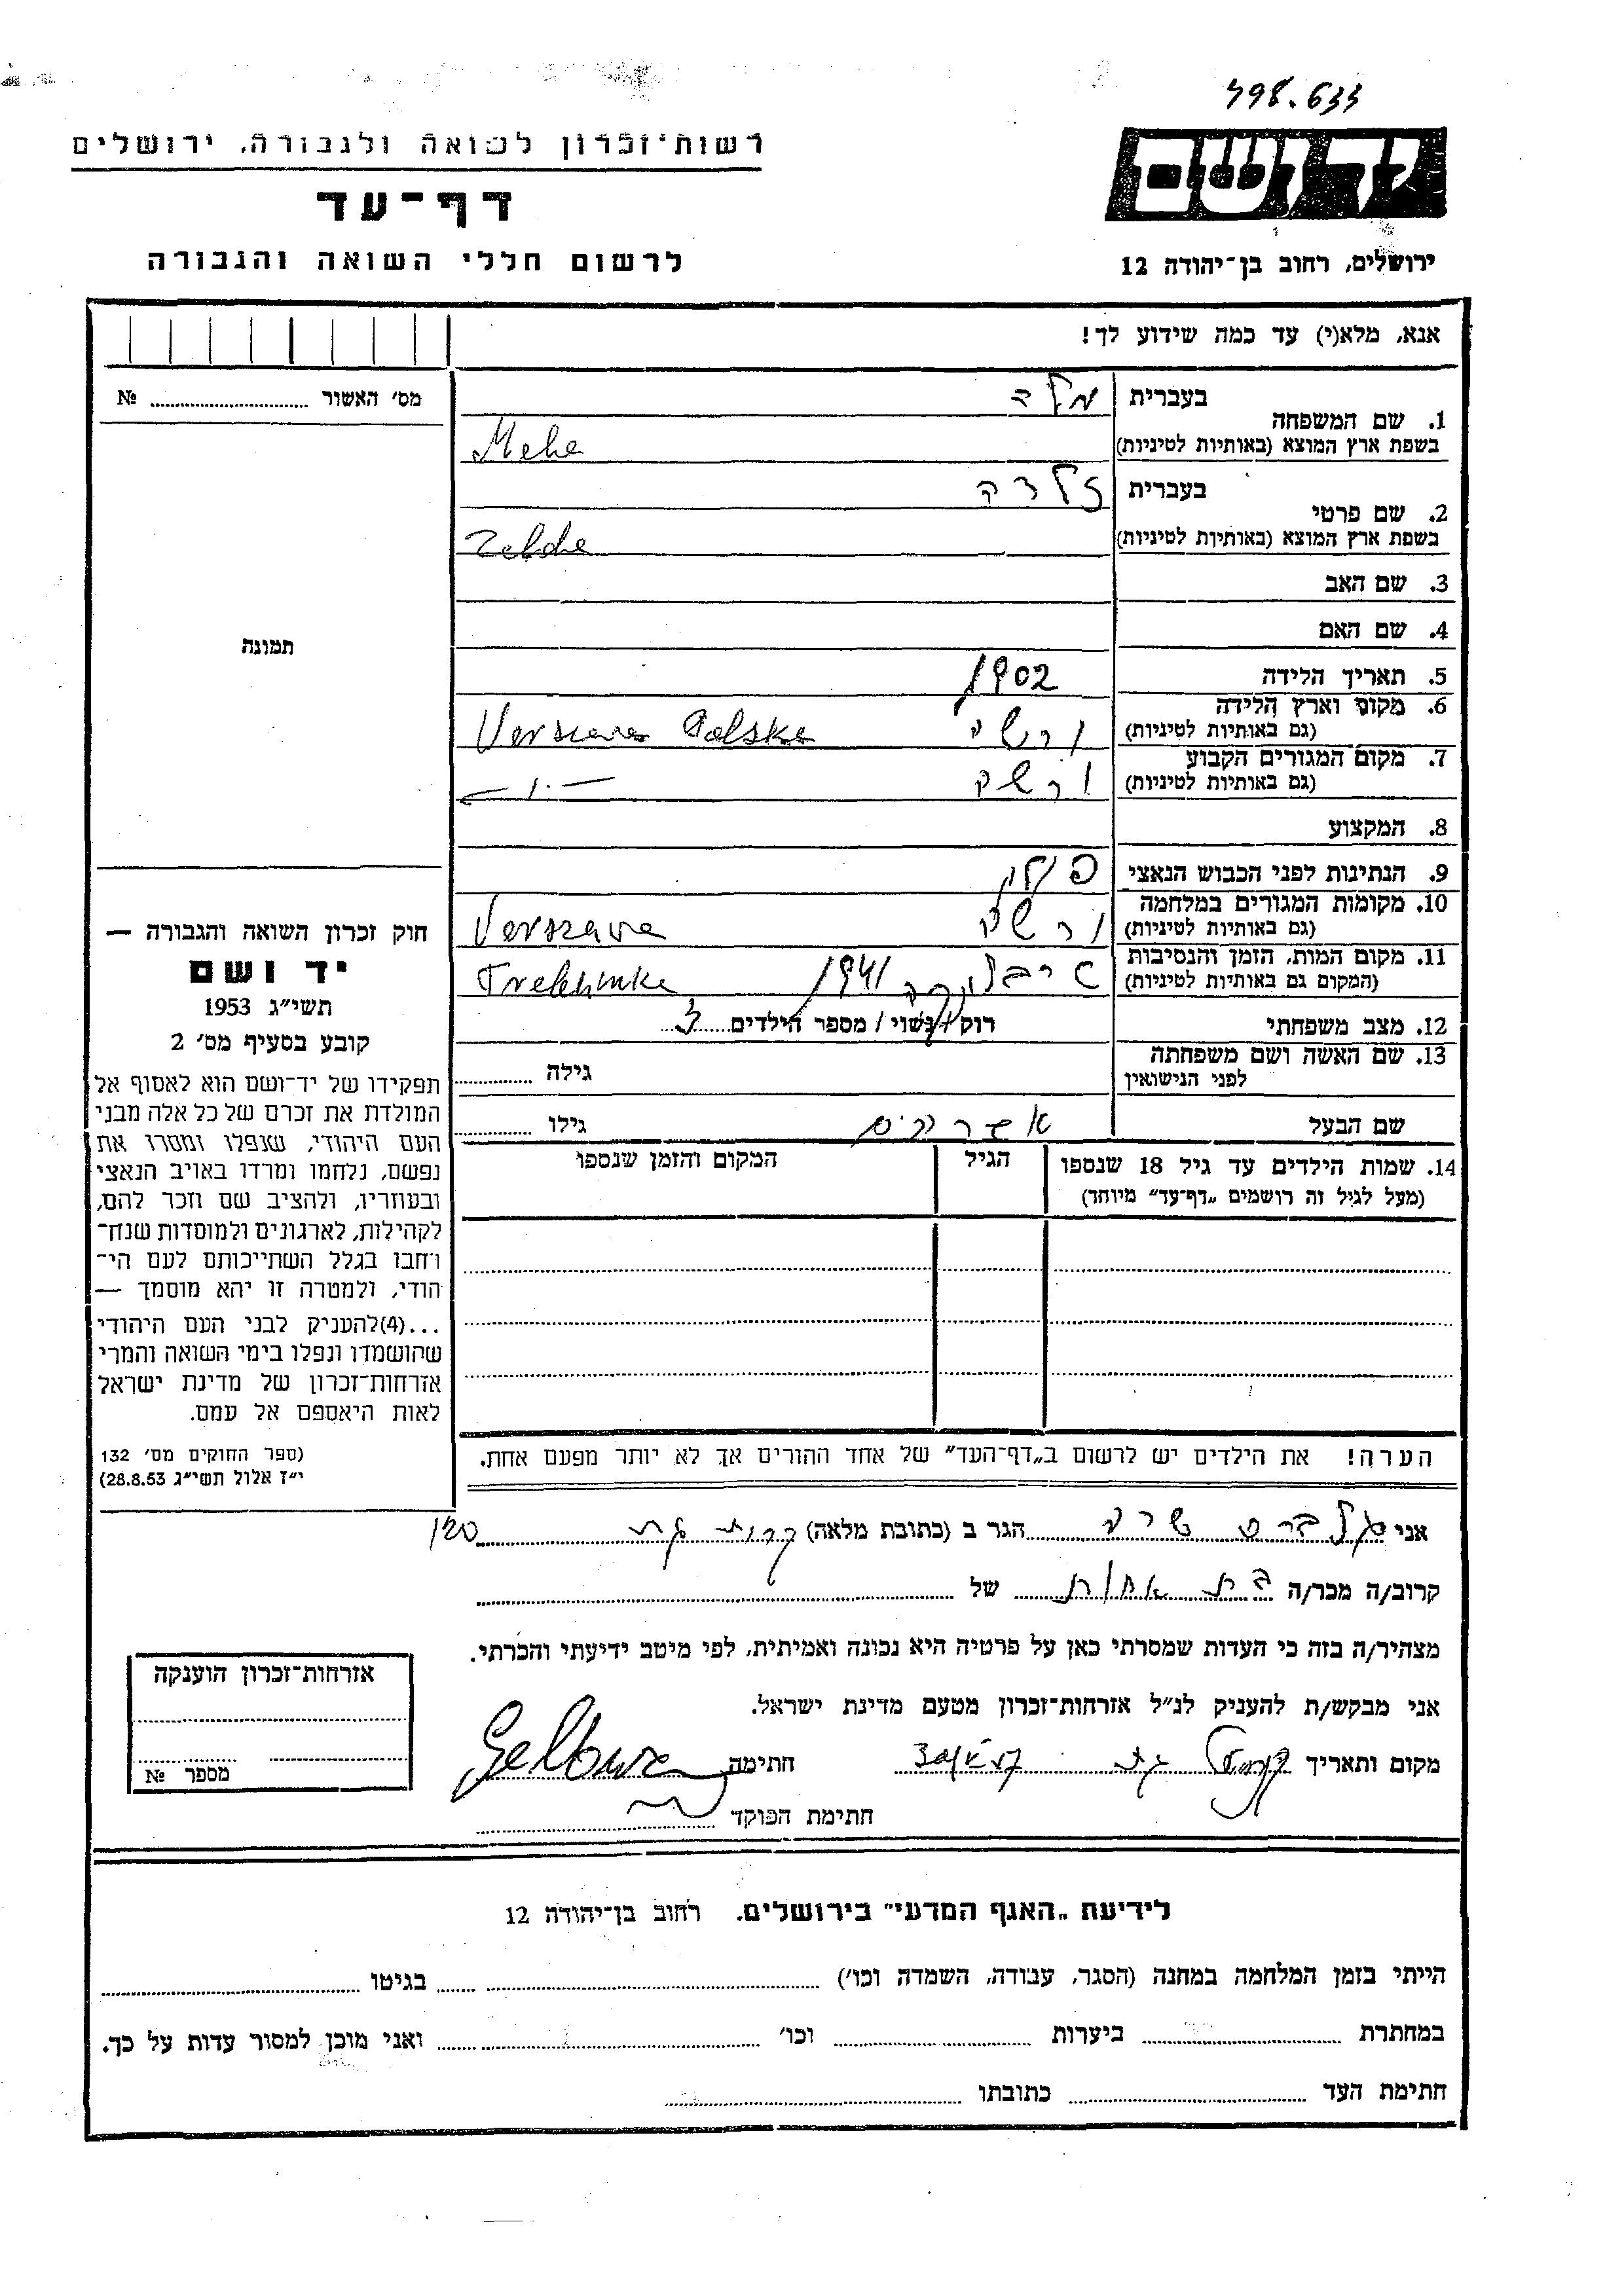 498.633
רשות־זכרון לשואה ולגבורה, ירושלים
דף־עד
לרשום חללי השואה והגבורה
ידושם
ירושלים, רחוב בן־יהודה 12
אנא, מלא(י) עד כמה שידוע לך!
מס׳ האשור № 
תמונה
בעברית
1. שם המשפחה
בשפת ארץ המוצא (באותיות לטיניות)
בעברית זלדה
2. שם פרטי
בשפת ארץ המוצא (באותיות לטיניות) Zelde
3. שם האב
4. שם האם
5. תאריך הלידה 1902
6. מקום וארץ הלידה
(גם באותיות לטיניות) ורשה Verszava Polska
7. מקום המגורים הקבוע
(גם באותיות לטיניות) ורשה
8. המקצוע
9. הנתינות לפני הכבוש הנאצי פולין
10. מקומות המגורים במלחמה
(גם באותיות לטיניות) ורשה Verszava
11. מקום המות, הזמן והנסיבות
(המקום גם באותיות לטיניות) טרבלינקה 1941 Treblinke
12. מצב משפחתי רוק / נשוי / מספר הילדים 3
13. שם האשה ושם משפחתה
לפני הנישואין גילה
שם הבעל גילו
14. שמות הילדים עד גיל 18 שנספו הגיל המקום והזמן שנספו
(מעל לגיל זה רושמים „דף־עד״ מיוחד)
הערה! את הילדים יש לרשום ב„דף־העד״ של אחד ההורים אך לא יותר מפעם אחת.
חוק זכרון השואה והגבורה —
יד ושם
תשי״ג 1953
קובע בסעיף מס׳ 2
תפקידו של יד־ושם הוא לאסוף אל
המולדת את זכרם של כל אלה מבני
העם היהודי, שנפלו ומסרו את
נפשם, נלחמו ומרדו באויב הנאצי
ובעוזריו, ולהציב שם וזכר להם,
לקהילות, לארגונים ולמוסדות שנח־
רחבו בגלל השתייכותם לעם הי־
הודי, ולמטרה זו יהא מוסמך —
...(4)להעניק לבני העם היהודי
שהושמדו ונפלו בימי השואה והמרי
אזרחות־זכרון של מדינת ישראל
לאות היאספם אל עמם.
(ספר החוקים מס׳ 132
י״ז אלול תשי״ג 28.8.53)
אני שרה הגר ב (כתובת מלאה) קרית גת
קרוב/ה מכר/ה בת אחות של
מצהיר/ה בזה כי העדות שמסרתי כאן על פרטיה היא נכונה ואמיתית, לפי מיטב ידיעתי והכרתי.
אני מבקש/ת להעניק לנ״ל אזרחות־זכרון מטעם מדינת ישראל.
מקום ותאריך חתימה
חתימת הפוקד
אזרחות־זכרון הוענקה
מספר №
לידיעת „האגף המדעי״ בירושלים. רחוב בן־יהודה 12
הייתי בזמן המלחמה במחנה (הסגר, עבודה, השמדה וכו׳) בגיטו
במחתרת ביערות וכו׳ ואני מוכן למסור עדות על כך.
חתימת העד כתובתו